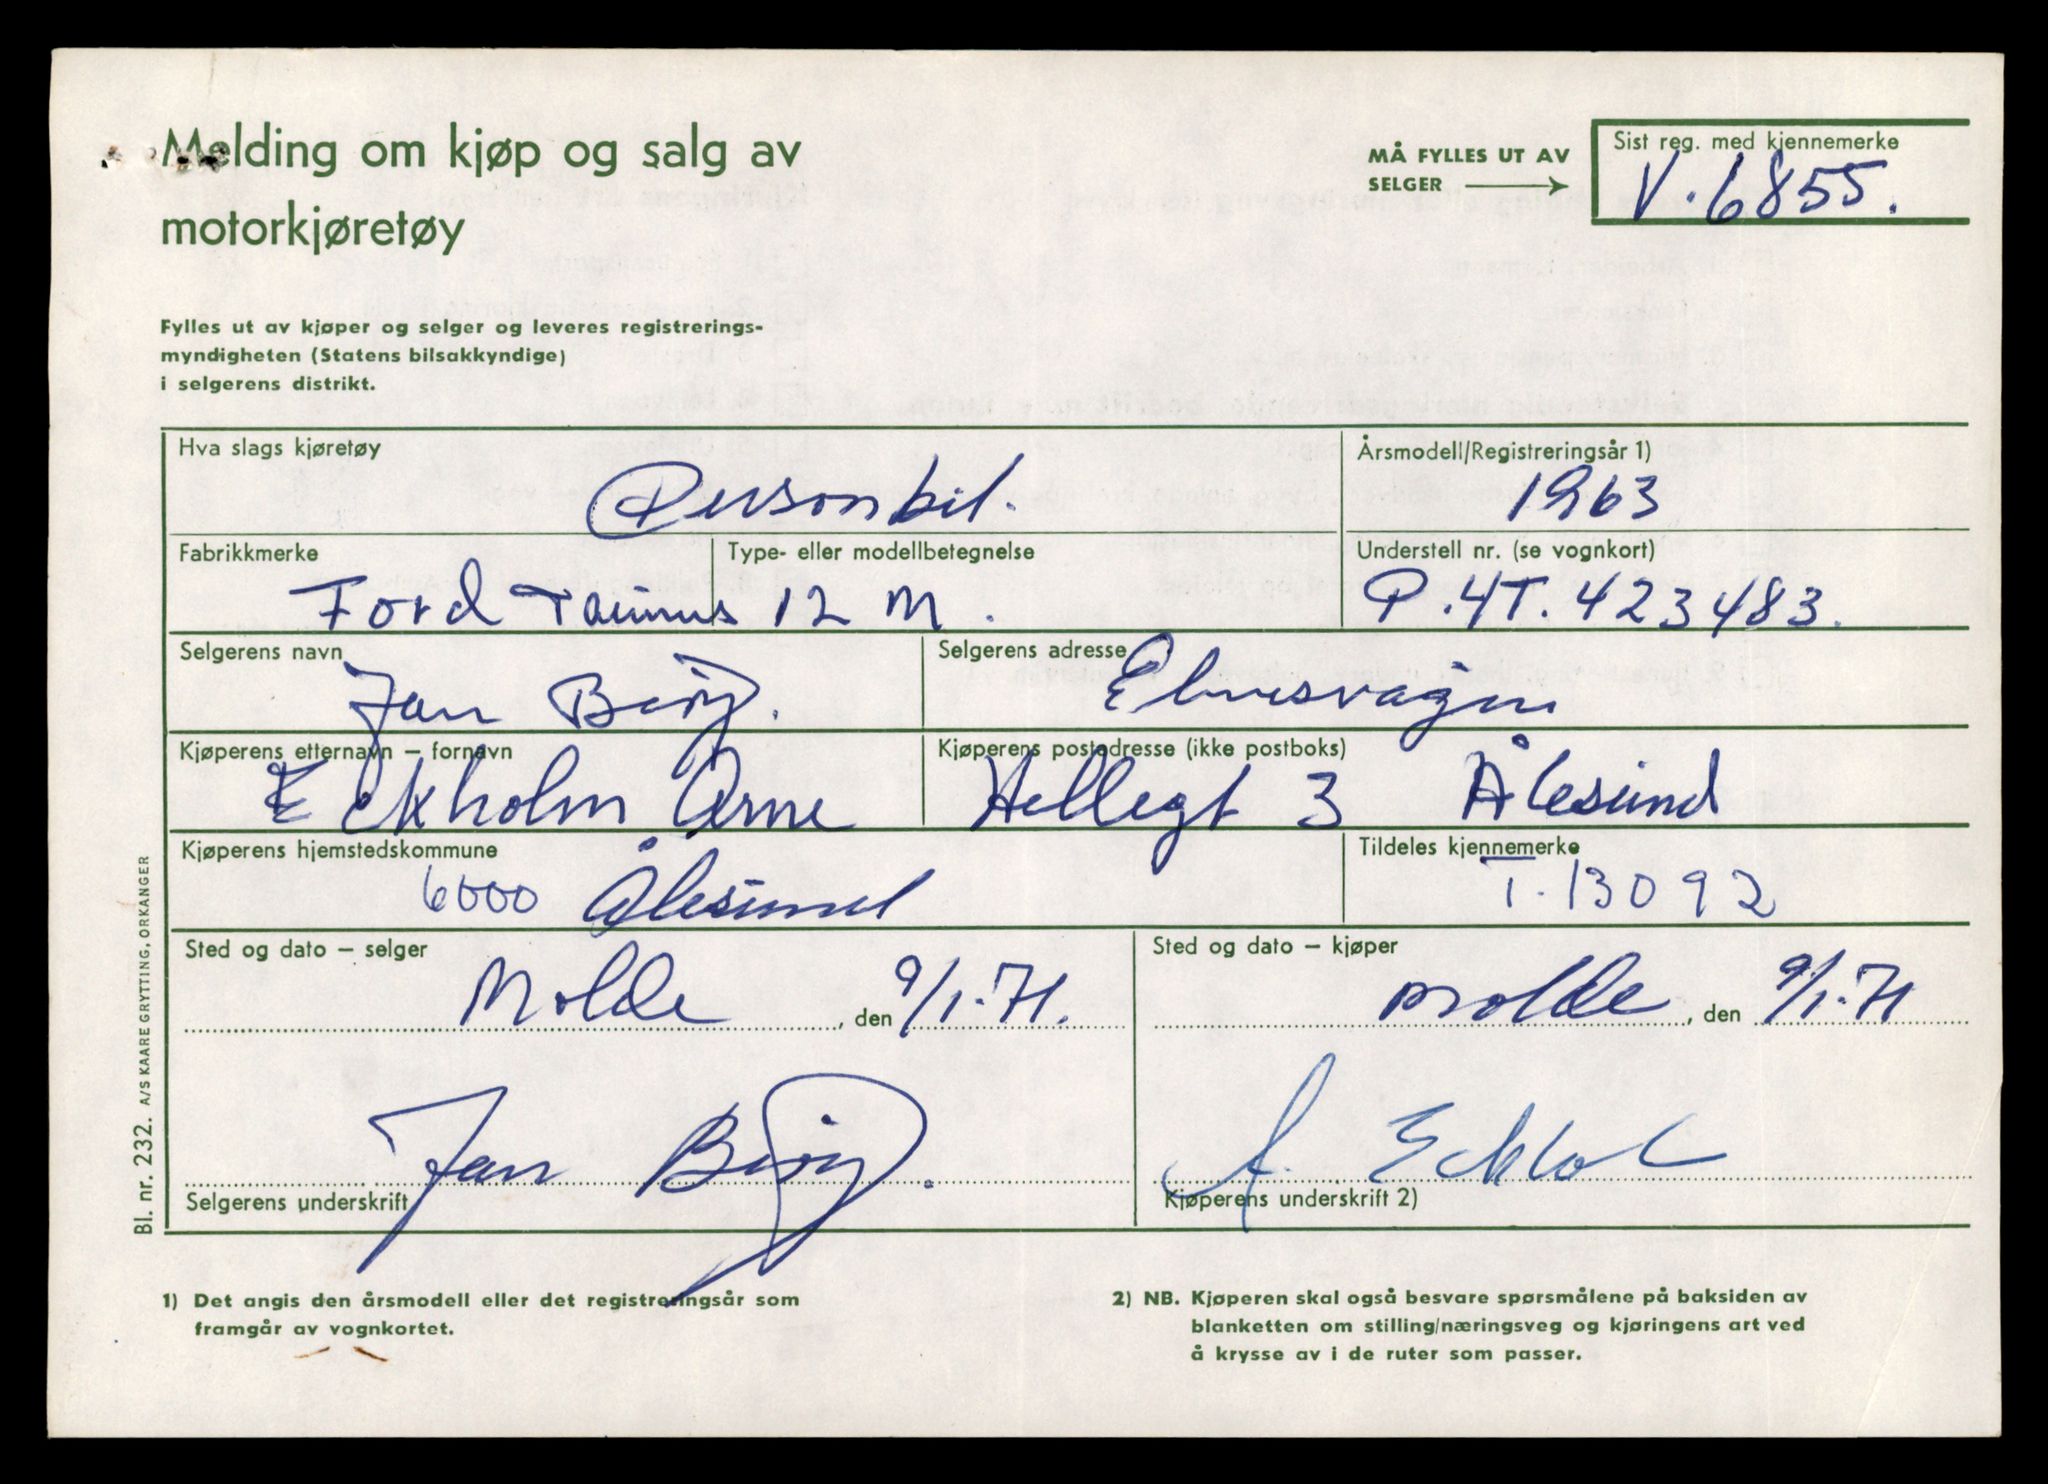 Melding om kjøp og salg av
motorkjøretøy
MÅ FYLLES UT AV
SELGER
Sist reg. med kjennemerke
V.6855.
Fylles ut av kjøper og selger og leveres registrerings-
myndigheten (Statens bilsakkyndige)
i selgerens distrikt.
Hva slags kjøretøy
Personbil.
Årsmodell/Registreringsår 1)
1963
Fabrikkmerke
Type- eller modellbetegnelse
Ford Taunus 12 M.
Understell nr. (se vognkort)
P.4T.423483.
Selgerens navn
Jan
Selgerens adresse
Kjøperens etternavn – fornavn
Eckholm Arne
Kjøperens postadresse (ikke postboks)
Hellegt 3 Ålesund
Kjøperens hjemstedskommune
6000 Ålesund
Tildeles kjennemerke
T.13092
Sted og dato – selger
Molde, den 9/1-71.
Sted og dato – kjøper
Molde, den 9/1-71
Jan
Selgerens underskrift
A. Eckhol
Kjøperens underskrift 2)
1) Det angis den årsmodell eller det registreringsår som
framgår av vognkortet.
2) NB. Kjøperen skal også besvare spørsmålene på baksiden av
blanketten om stilling/næringsveg og kjøringens art ved
å krysse av i de ruter som passer.
Bl. nr. 232. A/S KAARE GRYTTING, ORKANGER